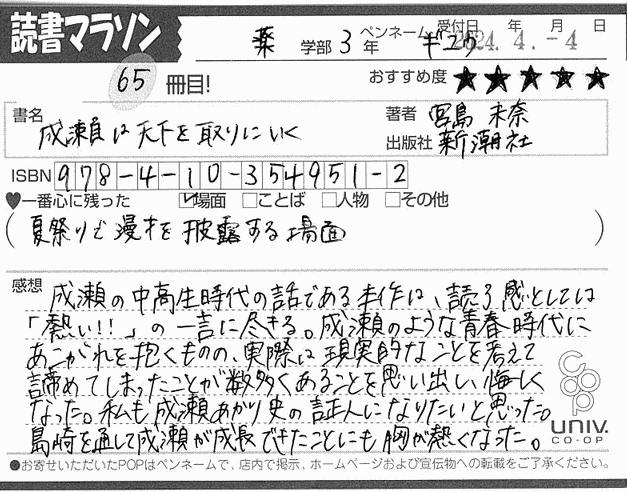 読書マラソン
薬 学部 3 年 ペンネーム ギユウ
受付日 年 月 日
2024.4.-4
65 冊目!
おすすめ度 ★★★★★
書名 成瀬は天下を取りにいく
著者 宮島 未奈
出版社 新潮社
ISBN 978-4-10-354951-2
♥一番心に残った ☑場面 □ことば □人物 □その他
(夏祭りで漫才を披露する場面)
感想 成瀬の中高生時代の話である本作は、読了感としては
「熱い!!」の一言に尽きる。成瀬のような青春時代に
あこがれを抱くものの、実際は現実的なことを考えて
諦めてしまったことが数多くあることを思い出し、悔しく
なった。私も成瀬あかり史の証人になりたいと思った。
島崎を通して成瀬が成長できたことにも胸が熱くなった。
coop
univ.
CO-OP
●お寄せいただいたPOPはペンネームで、店内で掲示、ホームページおよび宣伝物への転載をご了承ください。